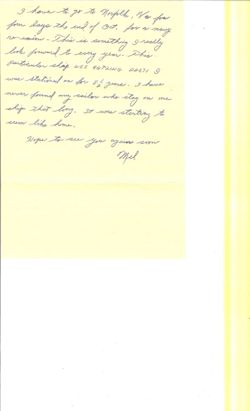 I have to go to Norfolk, Va for
four days the end of Oct. for a navy
reunion. This is something I really
look forward to every year. This
particular ship I
was stationed on for 8½ years. I have
never found any sailor who stay on one
ship that long. It was starting to
seem like home.
Hope to see you again soon
Mel